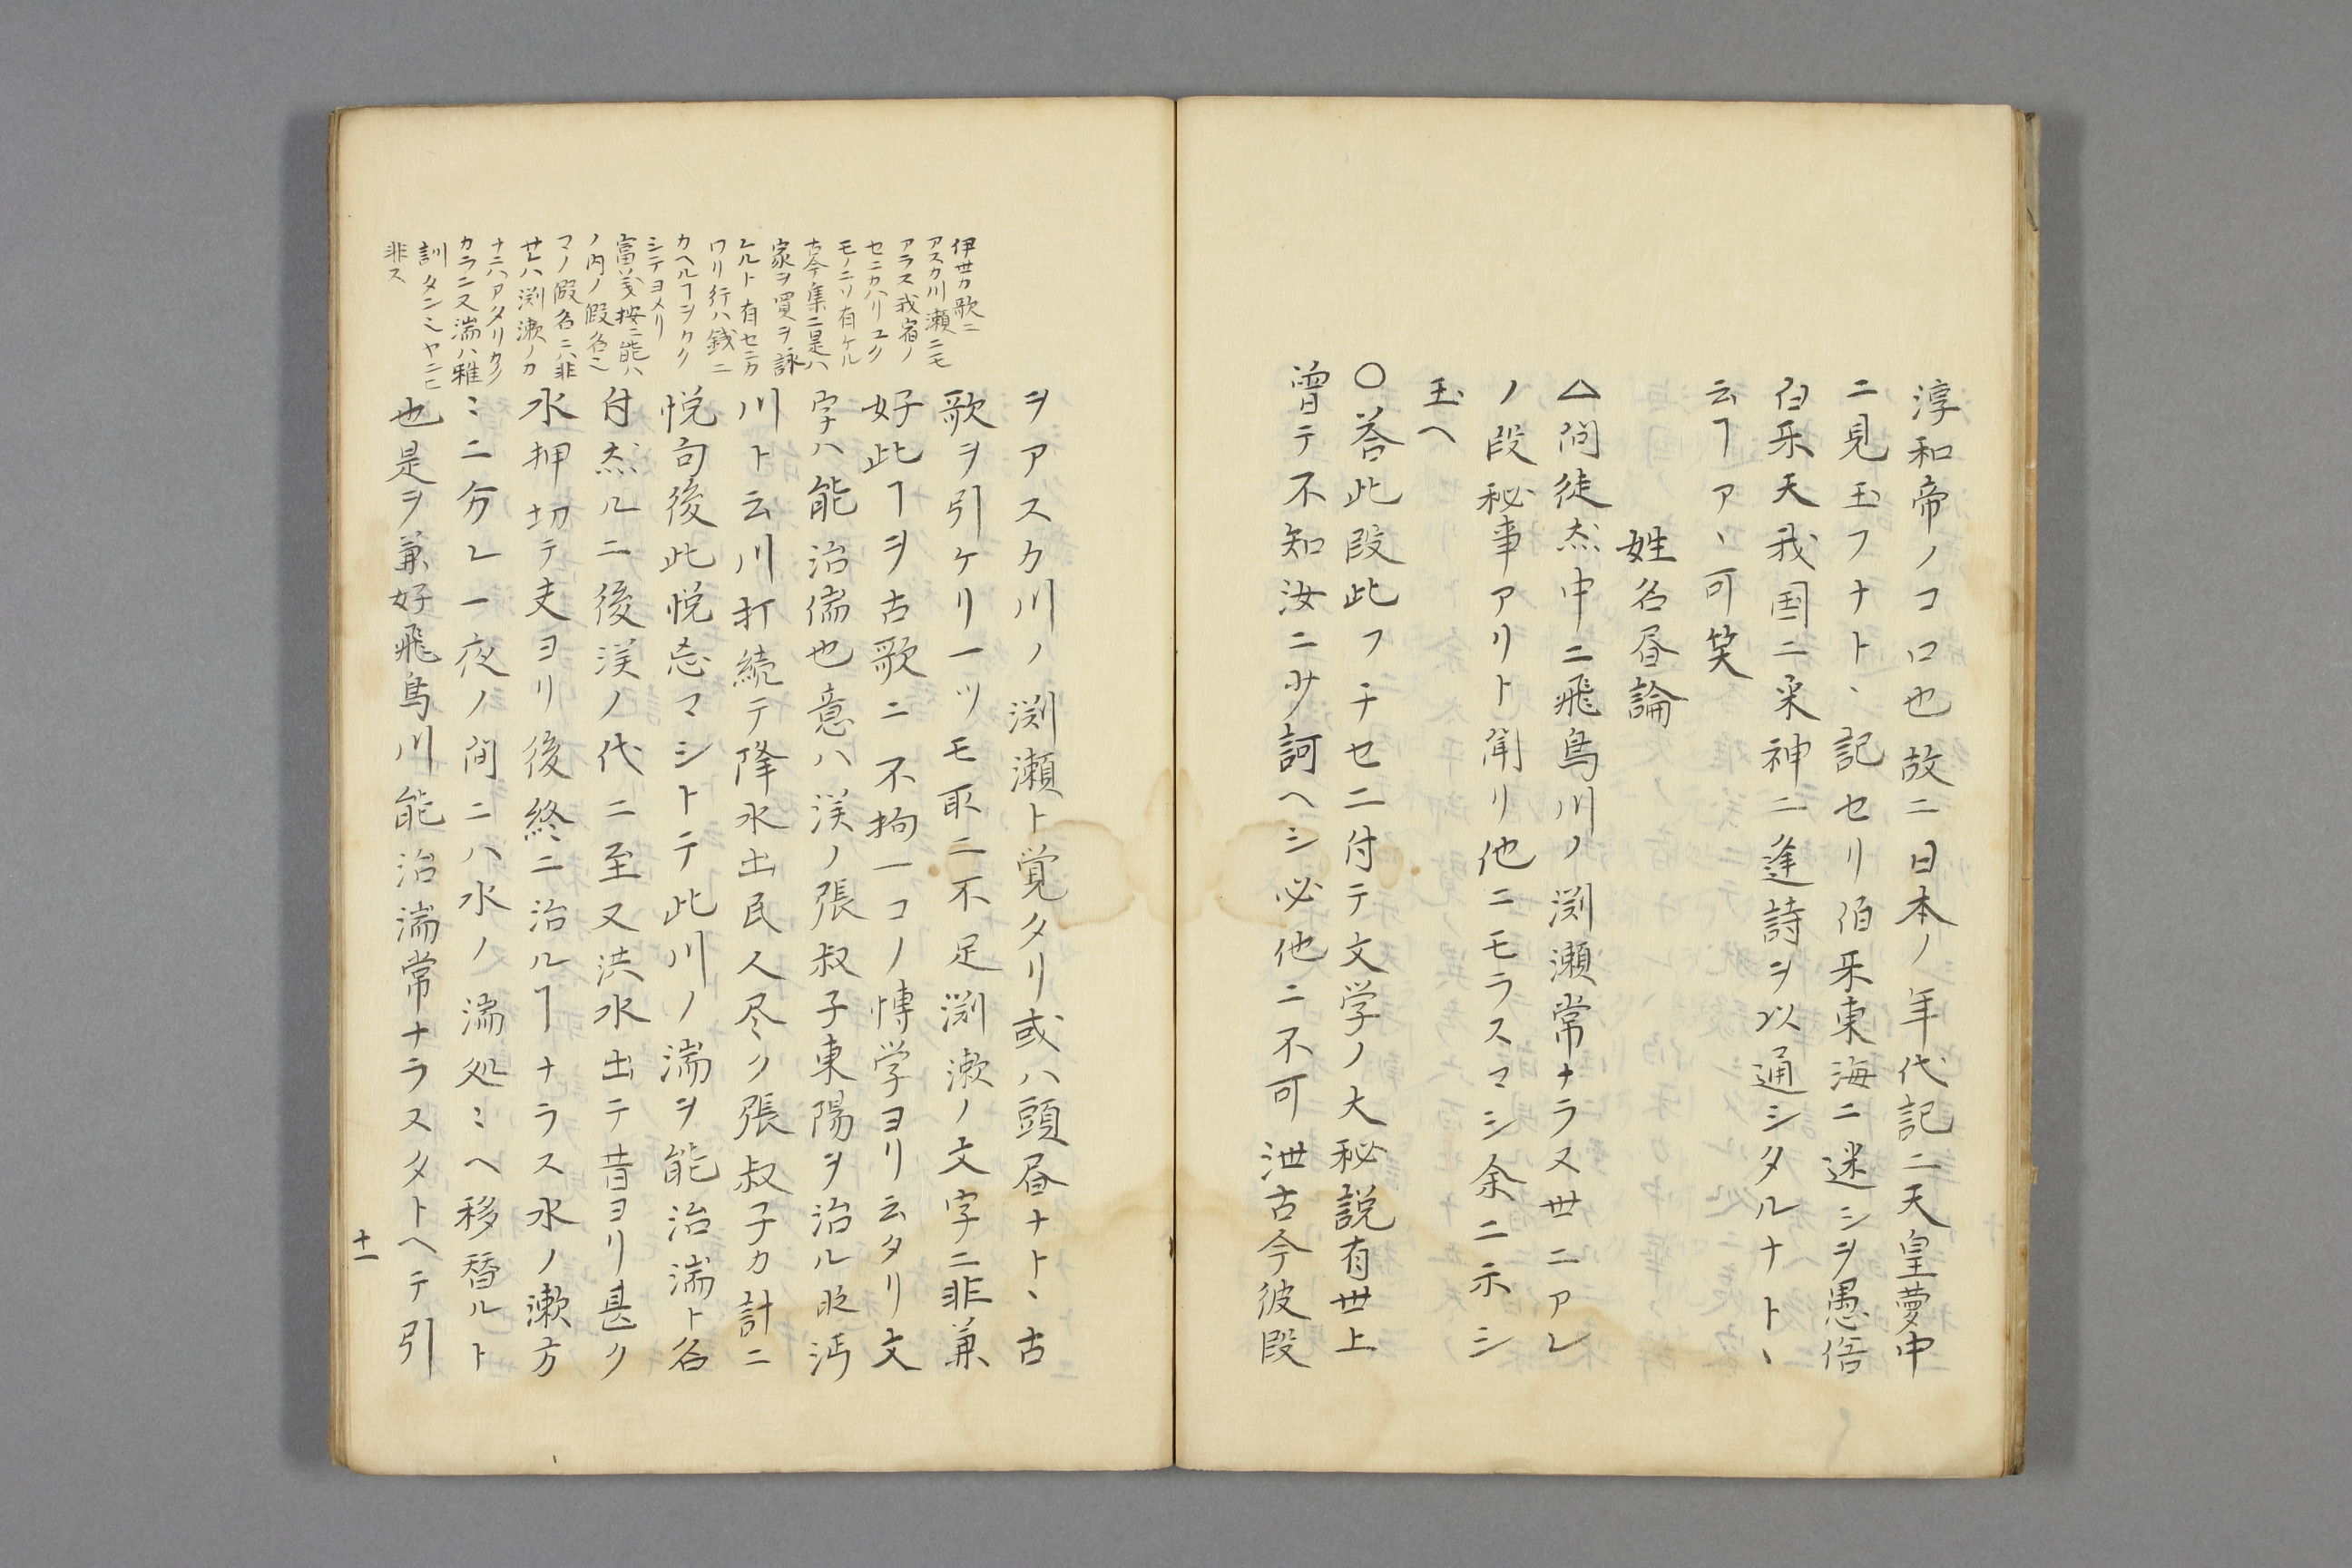 淳和帝ノコロ也故ニ日本ノ年代記ニ天皇夢中
ニ見玉フナト、記セリ伯楽東海ニ迷シヲ愚俗
白楽天我国ニ来神ニ逢詩ヲ以通シタルナト、
云ヿアヽ可笑
姓名昼論
△問徒然中ニ飛鳥川ノ渕瀬常ナラヌ世ニアレ
ノ段秘事アリト聞リ他ニモラスマシ余ニ示シ
玉へ
○答此段此フチセニ付テ文学ノ大秘説有世上
曽テ不知汝ニ少訶ヘシ必他ニ不可泄古今彼段
ヲアスカ川ノ渕瀬ト覚タリ或ハ頭昼ナト、古
歌ヲ引ケリ一ツモ取ニ不足渕漱ノ文字ニ非兼
好此ヿヲ古歌ニ不拘一コノ博学ヨリ云タリ文
字ハ能治湍也意ハ漢ノ張叔子東陽ヲ治ル時
川ト云川打続テ降水出民人尽ク張叔子カ計ニ
悦句後此悦忘マシトテ此川ノ湍ヲ能治湍ト名
付然ルニ後漢ノ代ニ至又洪水出テ昔ヨリ甚ク
水押切テ夫ヨリ後終ニ治ルヿナラス水ノ漱方
ミニ分レ一夜ノ間ニハ水ノ湍処ミヘ移替ルト
也是ヲ兼好飛鳥川能治湍常ナラスタトヘテ引
伊世カ歌ニ
アスカ川瀬ニモ
アラス我宿ノ
セニカハリユク
モノニソ有ケル
古今集ニ是ハ
家ヲ買ヲ詠
レルト有セニカ
ワリ行ハ銭ニ
カヘルヿヲカク
シテヨメリ
富義按ニ能ハ
ノ内ノ假名ニ
マノ假名ニハ非
セハ渕漱ノカ
ナニハアタリ
カラニ又湍ハ雅
訓タンニヤニニ
非ス
十一